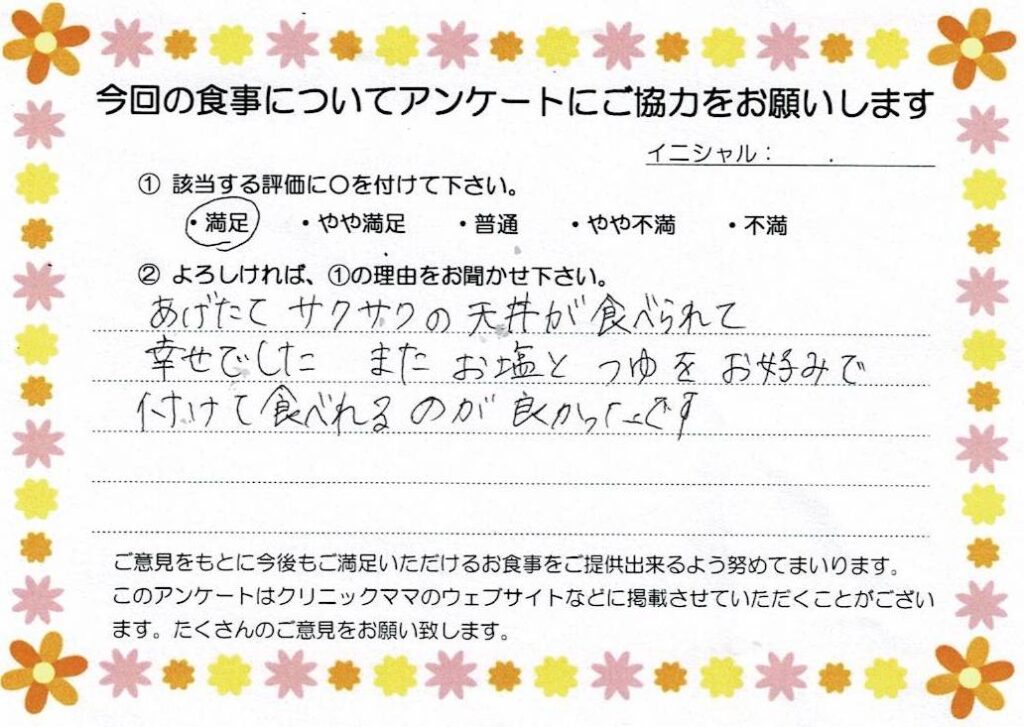 今回の食事についてアンケートにご協力をお願いします
イニシャル： .
① 該当する評価に〇を付けて下さい。
・満足 ・やや満足 ・普通 ・やや不満 ・不満
② よろしければ、①の理由をお聞かせ下さい。
あげたて サクサクの 天丼が 食べられて
幸せでした また お塩と つゆを お好みで
付けて 食べれる のが 良かったです
ご意見をもとに今後もご満足いただけるお食事をご提供出来るよう努めてまいります。
このアンケートはクリニックママのウェブサイトなどに掲載させていただくことがござい
ます。たくさんのご意見をお願い致します。